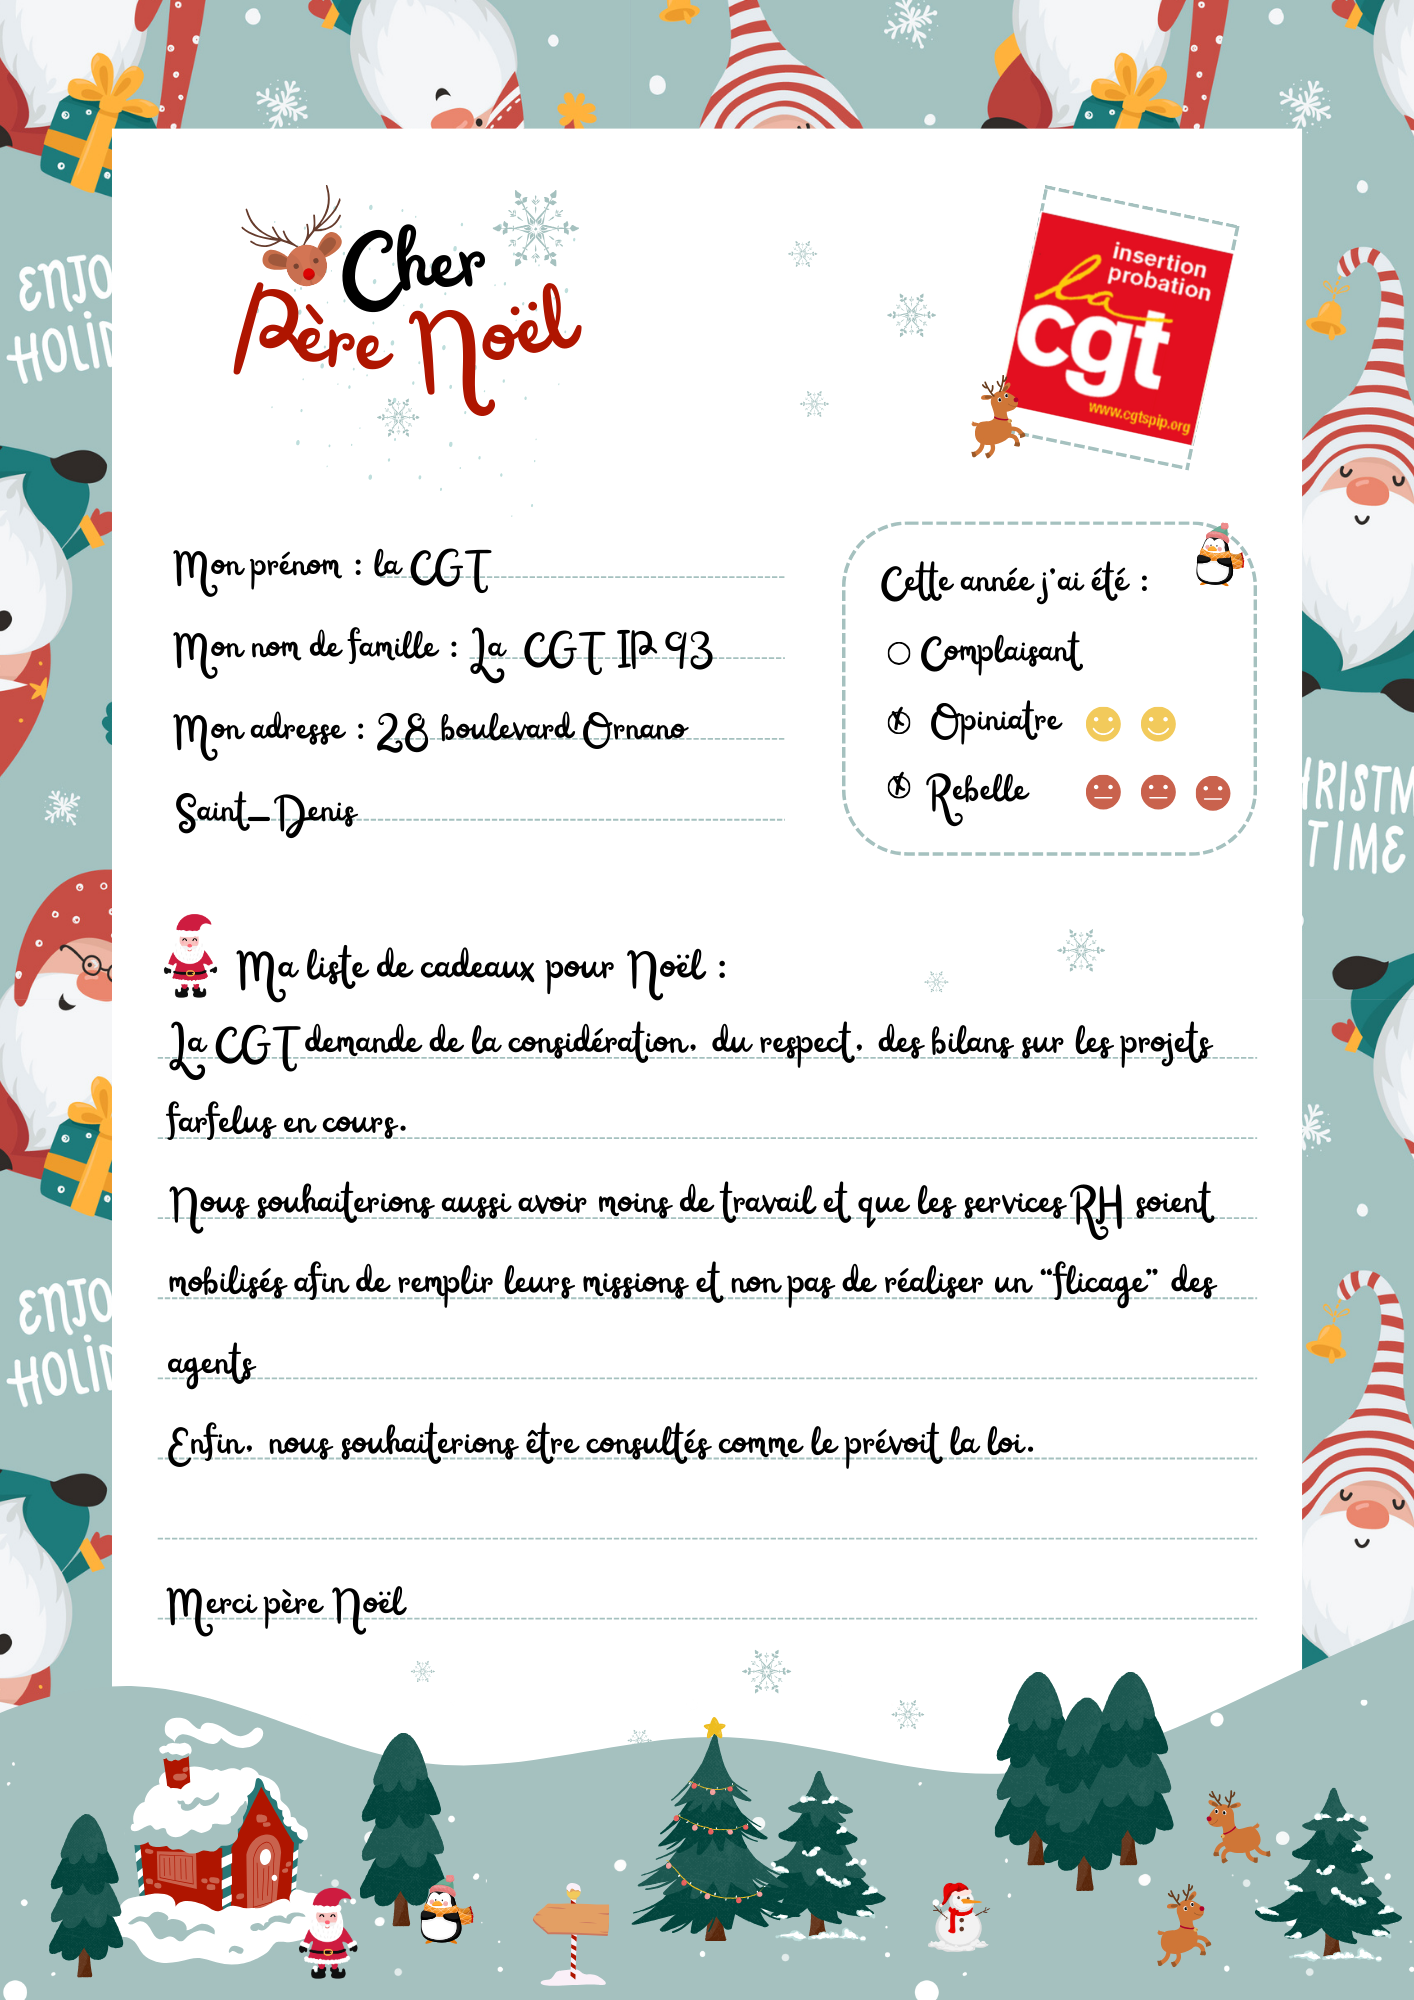 Cher
Père Noël
insertion
probation
la
cgt
www.cgtspip.org
ENJO
HOLID
Mon prénom : la CGT
Mon nom de famille : La CGT IP 93
Mon adresse : 28 boulevard Ornano
Saint-Denis
Cette année j'ai été :
Complaisant
x Opiniatre
x Rebelle
HRISTM
TIME
Ma liste de cadeaux pour Noël :
La CGT demande de la considération, du respect, des bilans sur les projets
farfelus en cours.
Nous souhaiterions aussi avoir moins de travail et que les services RH soient
mobilisés afin de remplir leurs missions et non pas de réaliser un “flicage” des
agents
Enfin, nous souhaiterions être consultés comme le prévoit la loi.
ENJO
HOLID
Merci père Noël